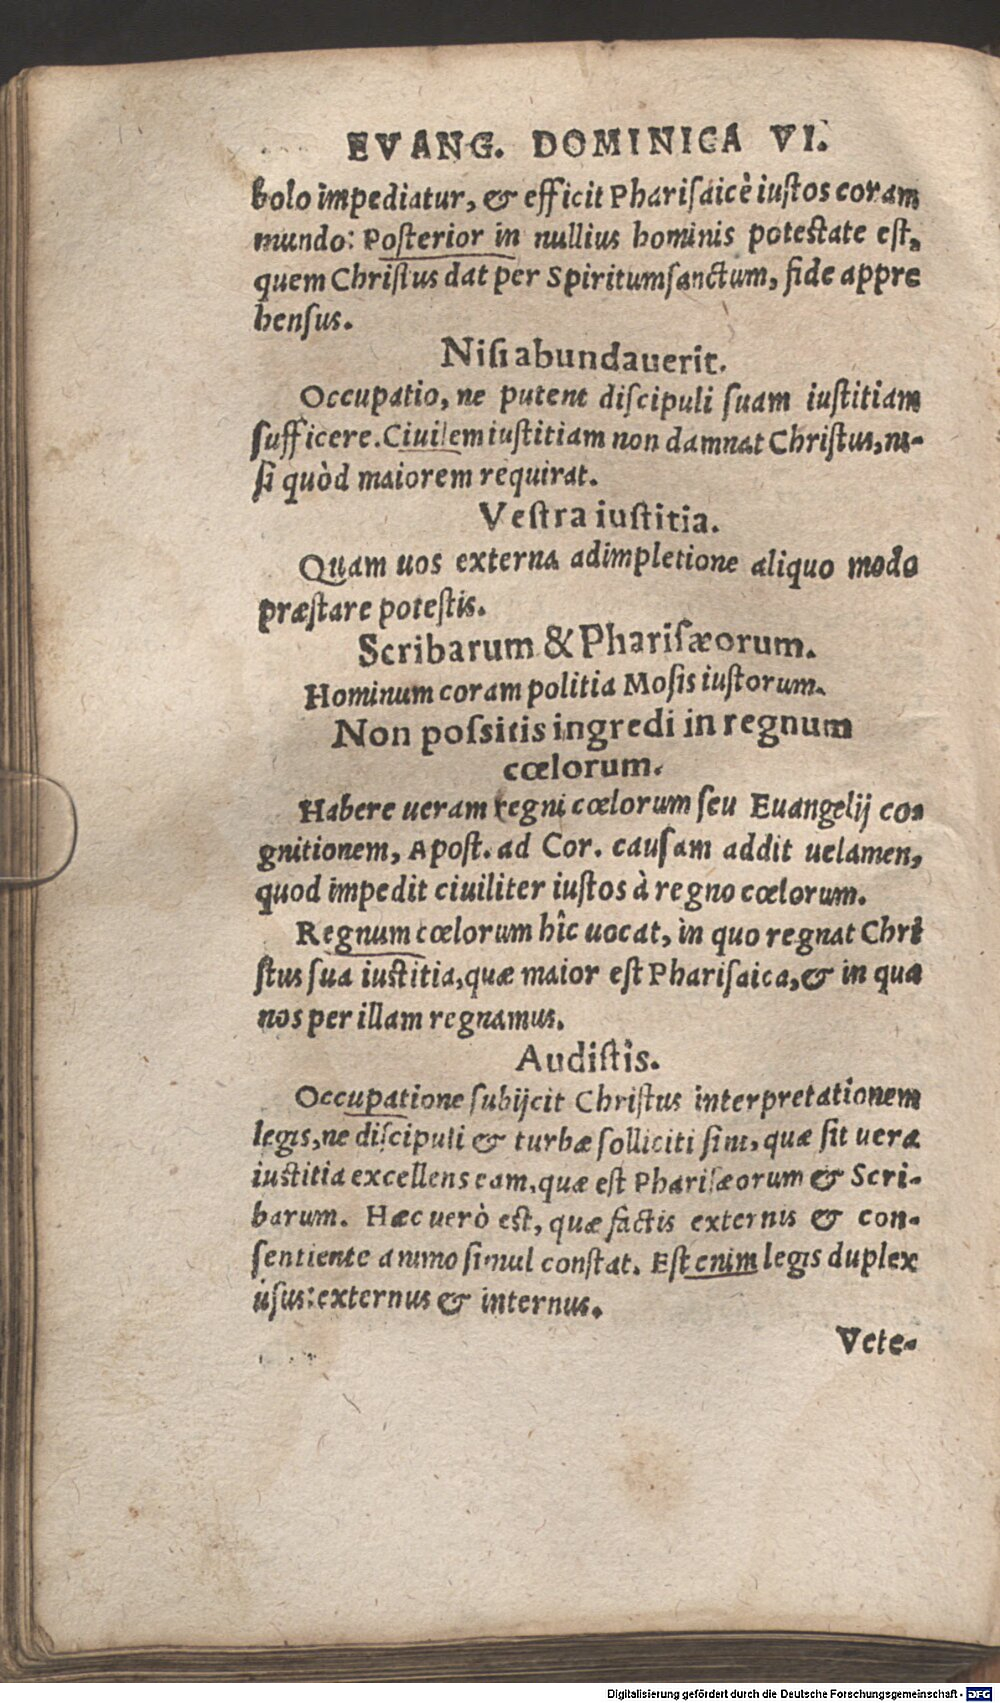 EVANG. DOMINICA VI.
bolo impediatur, & efficit Pharisaicè iustos coram
mundo: Posterior in nullius hominis potestate est,
quem Christus dat per Spiritumsanctum, fide appre
hensus.
Nisi abundauerit.
Occupatio, ne putent discipuli suam iustitiam
sufficere. Ciuilem iustitiam non damnat Christus, ni-
si quòd maiorem requirat.
Vestra iustitia.
Quam uos externa adimpletione aliquo modo
præstare potestis.
Scribarum & Pharisæorum.
Hominum coram politia Mosis iustorum.
Non possitis ingredi in regnum
cœlorum.
Habere ueram regni cœlorum seu Euangelij co-
gnitionem, Apost. ad Cor. causam addit uelamen,
quod impedit ciuiliter iustos à regno cœlorum.
Regnum cœlorum hîc uocat, in quo regnat Chri
stus sua iustitia, quæ maior est Pharisaica, & in qua
nos per illam regnamus.
Audistis.
Occupatione subijcit Christus interpretationem
legis, ne discipuli & turbæ solliciti sint, quæ sit uera
iustitia excellens eam, quæ est Pharisæorum & Scri-
barum. Hæc uerò est, quæ factis externis & con-
sentiente animo simul constat. Est enim legis duplex
usus: externus & internus.
Vete-
Digitalisierung gefördert durch die Deutsche Forschungsgemeinschaft - DFG